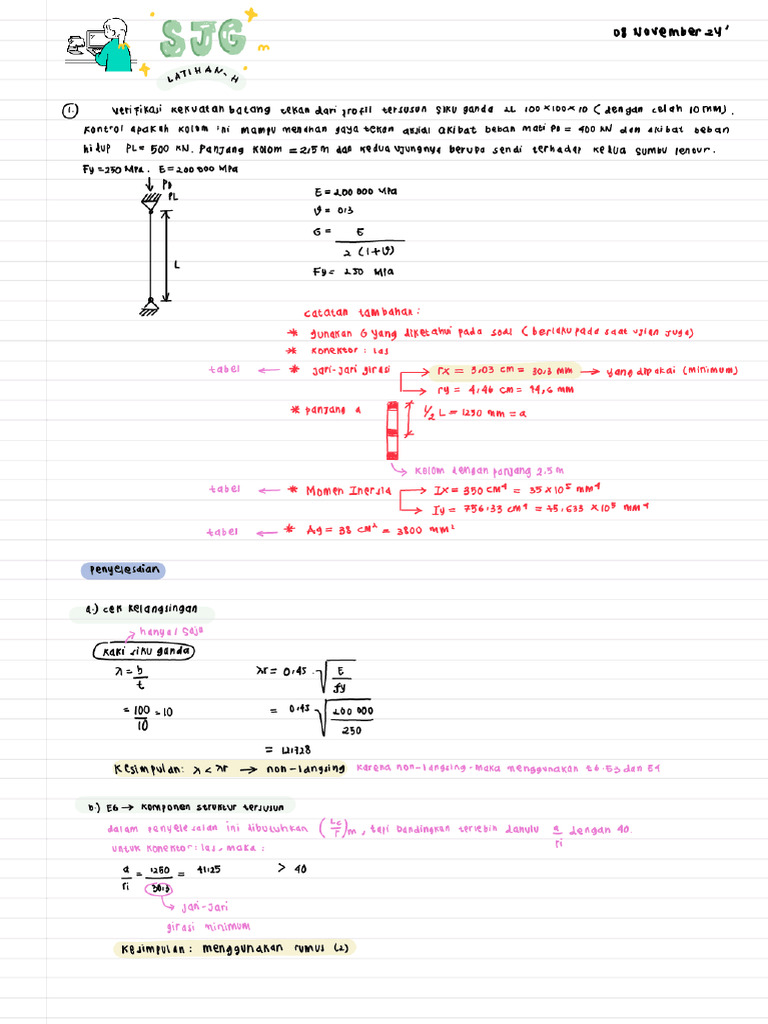 08 November 24'
SJG
LATIHAN-H
1. Verifikasi kekuatan batang tekan dari profil tersusun siku ganda 2L 100×100×10 (dengan celah 10 mm).
Kontrol apakah kolom ini mampu menahan gaya tekan aksial akibat beban mati PD = 400 kN dan akibat beban
hidup PL = 500 kN. Panjang kolom = 2,5 m dan kedua ujungnya berupa sendi terhadap kedua sumbu lentur.
Fy = 250 MPa. E = 200 000 MPa
PD
PL
L
E = 200 000 MPa
υ = 0,3
G = E / 2 (1+υ)
Fy = 250 MPa
Catatan tambahan:
* gunakan G yang diketahui pada soal (berlaku pada saat ujian juga)
* konektor : las
tabel ← * jari-jari girasi → rx = 3,03 cm = 30,3 mm → yang dipakai (minimum)
→ ry = 4,46 cm = 44,6 mm
* panjang a 1/2 L = 1250 mm = a
kolom dengan panjang 2,5 m
tabel ← * Momen Inersia → Ix = 350 cm⁴ = 35 × 10⁵ mm⁴
→ Iy = 756,33 cm⁴ = 75,633 × 10⁵ mm⁴
tabel ← * Ag = 38 cm² = 3800 mm²
Penyelesaian
a.) cek kelangsingan
hanya 1 saja
kaki siku ganda
λ = b/t λr = 0,45 √(E/fy)
= 100/10 = 10 = 0,45 √(200 000/250)
= 12,728
Kesimpulan: λ < λr → non-langsing karena non-langsing, maka menggunakan E6, E3 dan E4
b.) E6 → komponen struktur tersusun
dalam penyelesaian ini dibutuhkan (Lc/r)m, tapi bandingkan terlebih dahulu a/ri dengan 40.
untuk konektor : las, maka :
a/ri = 1250/30,3 = 41,25 > 40
jari-jari
girasi minimum
Kesimpulan : menggunakan rumus (2)